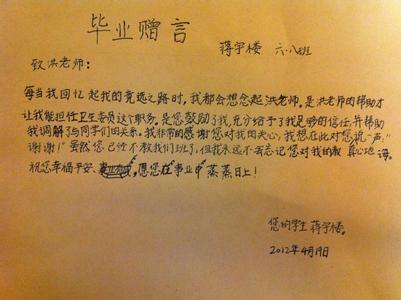 毕业赠言
蒋宇楼 六.八班
致洪老师：
每当我回忆起我的竞选之路时，我都会想念起洪老师，是洪老师的帮助才
让我能担任卫生委员这个职务。是您鼓励了我，充分给予了我足够的信任，并帮助
我调解了与同学们的关系。我非常的感谢您对我的关心，我想在此对您说一声：
谢谢！"虽然您已经不教我们班了，但我永远不会忘记您对我的教 真心地 诲。
祝您幸福平安、愿您在事业中蒸蒸日上！
您的学生 蒋宇楼。
2012年4月19日